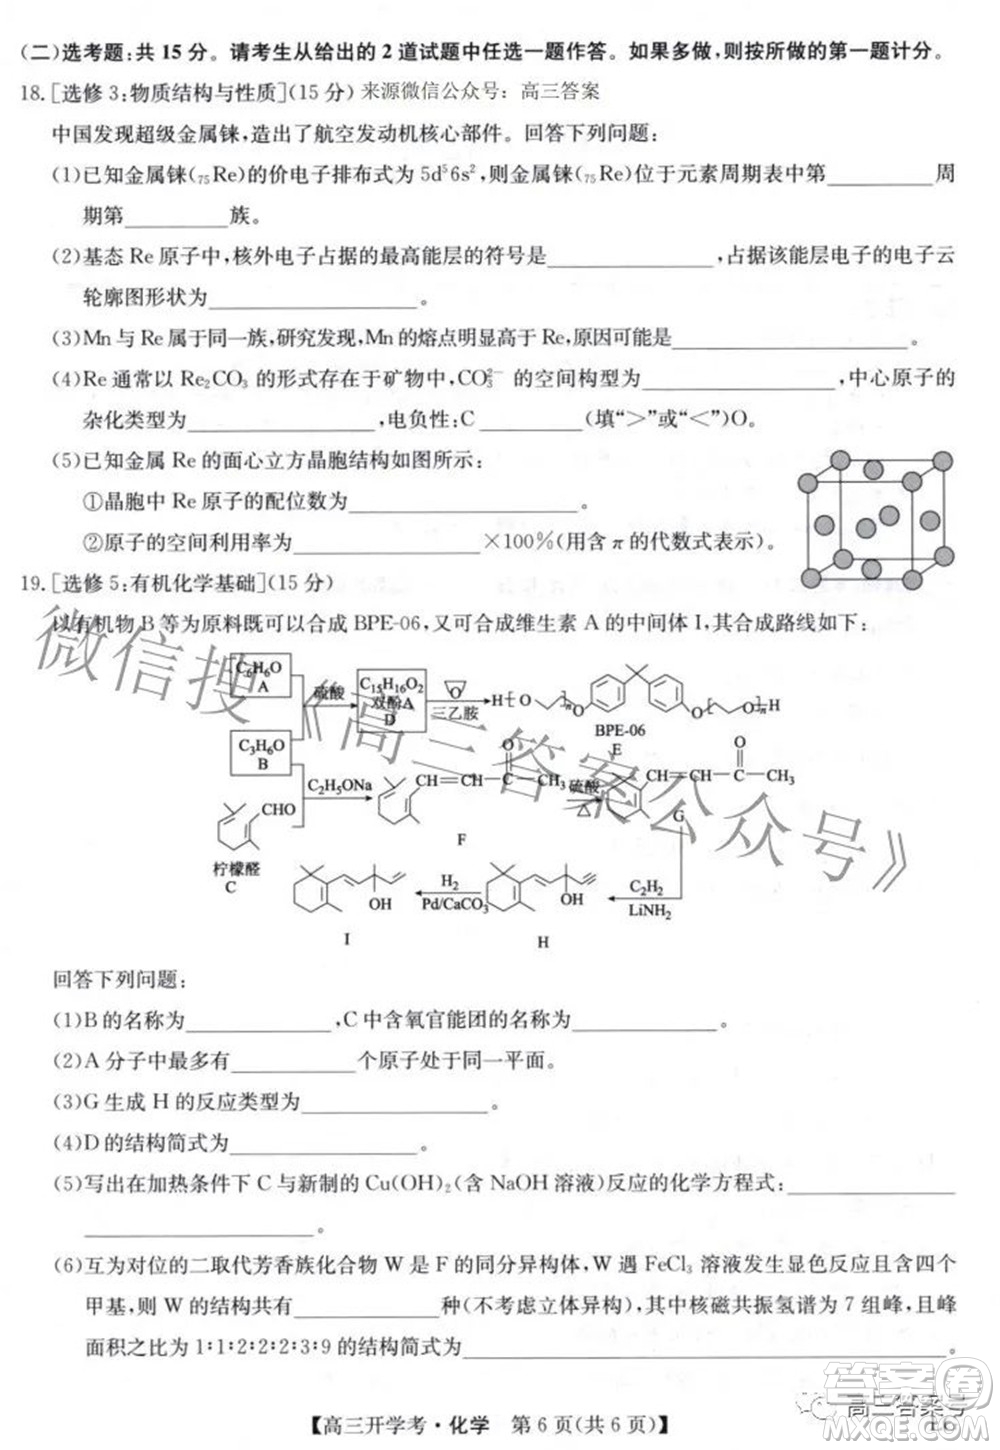 (二)选考题:共 15 分。请考生从给出的 2 道试题中任选一题作答。如果多做,则按所做的第一题计分。
18.[选修 3:物质结构与性质](15 分) 来源微信公众号：高三答案
中国发现超级金属铼,造出了航空发动机核心部件。回答下列问题:
(1)已知金属铼(₇₅Re)的价电子排布式为 5d⁵6s²,则金属铼(₇₅Re)位于元素周期表中第________周
期第________族。
(2)基态 Re 原子中,核外电子占据的最高能层的符号是____________,占据该能层电子的电子云
轮廓图形状为____________。
(3)Mn 与 Re 属于同一族,研究发现,Mn 的熔点明显高于 Re,原因可能是____________________。
(4)Re 通常以 Re₂CO₃ 的形式存在于矿物中,CO₃²⁻ 的空间构型为____________,中心原子的
杂化类型为____________,电负性:C________(填“>”或“<”)O。
(5)已知金属 Re 的面心立方晶胞结构如图所示:
①晶胞中 Re 原子的配位数为____________。
②原子的空间利用率为____________×100%(用含 π 的代数式表示)。
19.[选修 5:有机化学基础](15 分)
以有机物 B 等为原料既可以合成 BPE-06,又可合成维生素 A 的中间体 I,其合成路线如下:
C₆H₆O
A
硫酸
C₁₅H₁₆O₂
双酚A
D
O
三乙胺
H[O O]n O [O O]n H
BPE-06
E
C₃H₆O
B
C₂H₅ONa
CHO
柠檬醛
C
CH=CH O CH₃
F
硫酸
△
O CH₃
G
C₂H₂
LiNH₂
OH
H
H₂
Pd/CaCO₃
OH
I
回答下列问题:
(1)B 的名称为____________,C 中含氧官能团的名称为____________。
(2)A 分子中最多有____________个原子处于同一平面。
(3)G 生成 H 的反应类型为____________。
(4)D 的结构简式为____________。
(5)写出在加热条件下 C 与新制的 Cu(OH)₂(含 NaOH 溶液)反应的化学方程式:____________
____________________。
(6)互为对位的二取代芳香族化合物 W 是 F 的同分异构体,W 遇 FeCl₃ 溶液发生显色反应且含有 4 个
甲基,则 W 的结构共有____________种(不考虑立体异构),其中核磁共振氢谱为 7 组峰,且峰
面积之比为 1∶1∶2∶2∶2∶3∶9 的结构简式为____________。
【高三开学考·化学 第 6 页(共 6 页)】
微信搜《高三答案公众号》
高三答案号
答案圈
MXQE.COM